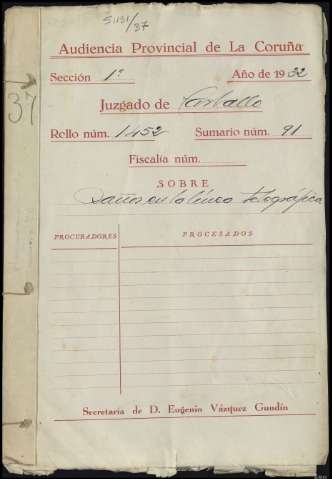 S/131/37
Audiencia Provincial de La Coruña
Sección 1ª Año de 1932
37
Juzgado de Carballo
Rollo núm. 1452 Sumario núm. 91
Fiscalía núm.
SOBRE
Daños en la línea telegráfica
PROCURADORES PROCESADOS
Secretaría de D. Eugenio Vázquez Gundín